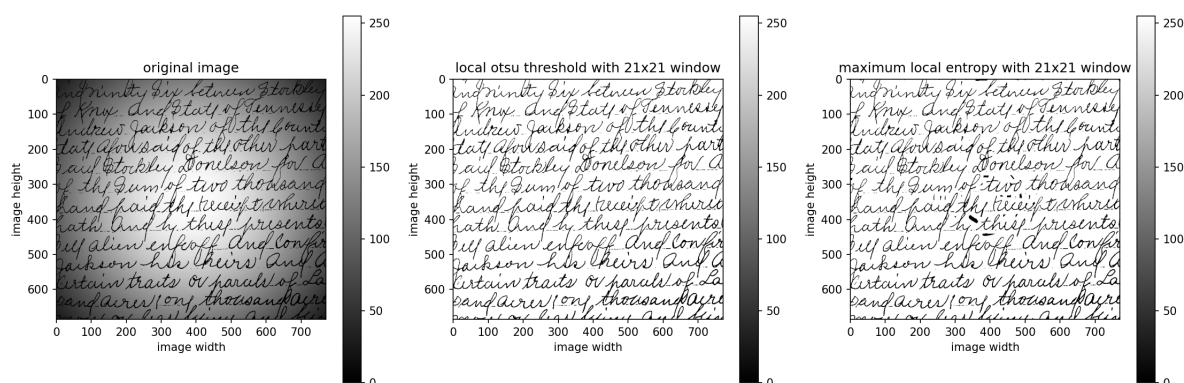 original image
image height
0
100
200
300
400
500
600
ind Ninety Six between Stockley
of Knox and State of Tennessey
Andrew Jackson of the Count
tate aforesaid of the other part
said Stockley Donelson for a
of the Sum of two thousand
hand paid the receipt wherei
hath and by this presents
sell alien enfeoff and Confir
Jackson his heirs and a
certain traits or parcels of La
sand acres long thousand acre
0 100 200 300 400 500 600 700
image width
250
200
150
100
50
0
local otsu threshold with 21x21 window
image height
0
100
200
300
400
500
600
ind Ninety Six between Stockley
of Knox and State of Tennessey
Andrew Jackson of the Count
tate aforesaid of the other part
said Stockley Donelson for a
of the Sum of two thousand
hand paid the receipt wherei
hath and by this presents
sell alien enfeoff and Confir
Jackson his heirs and a
certain traits or parcels of La
sand acres long thousand acre
0 100 200 300 400 500 600 700
image width
250
200
150
100
50
0
maximum local entropy with 21x21 window
image height
0
100
200
300
400
500
600
ind Ninety Six between Stockley
of Knox and State of Tennessey
Andrew Jackson of the Count
tate aforesaid of the other part
said Stockley Donelson for a
of the Sum of two thousand
hand paid the receipt wherei
hath and by this presents
sell alien enfeoff and Confir
Jackson his heirs and a
certain traits or parcels of La
sand acres long thousand acre
0 100 200 300 400 500 600 700
image width
250
200
150
100
50
0